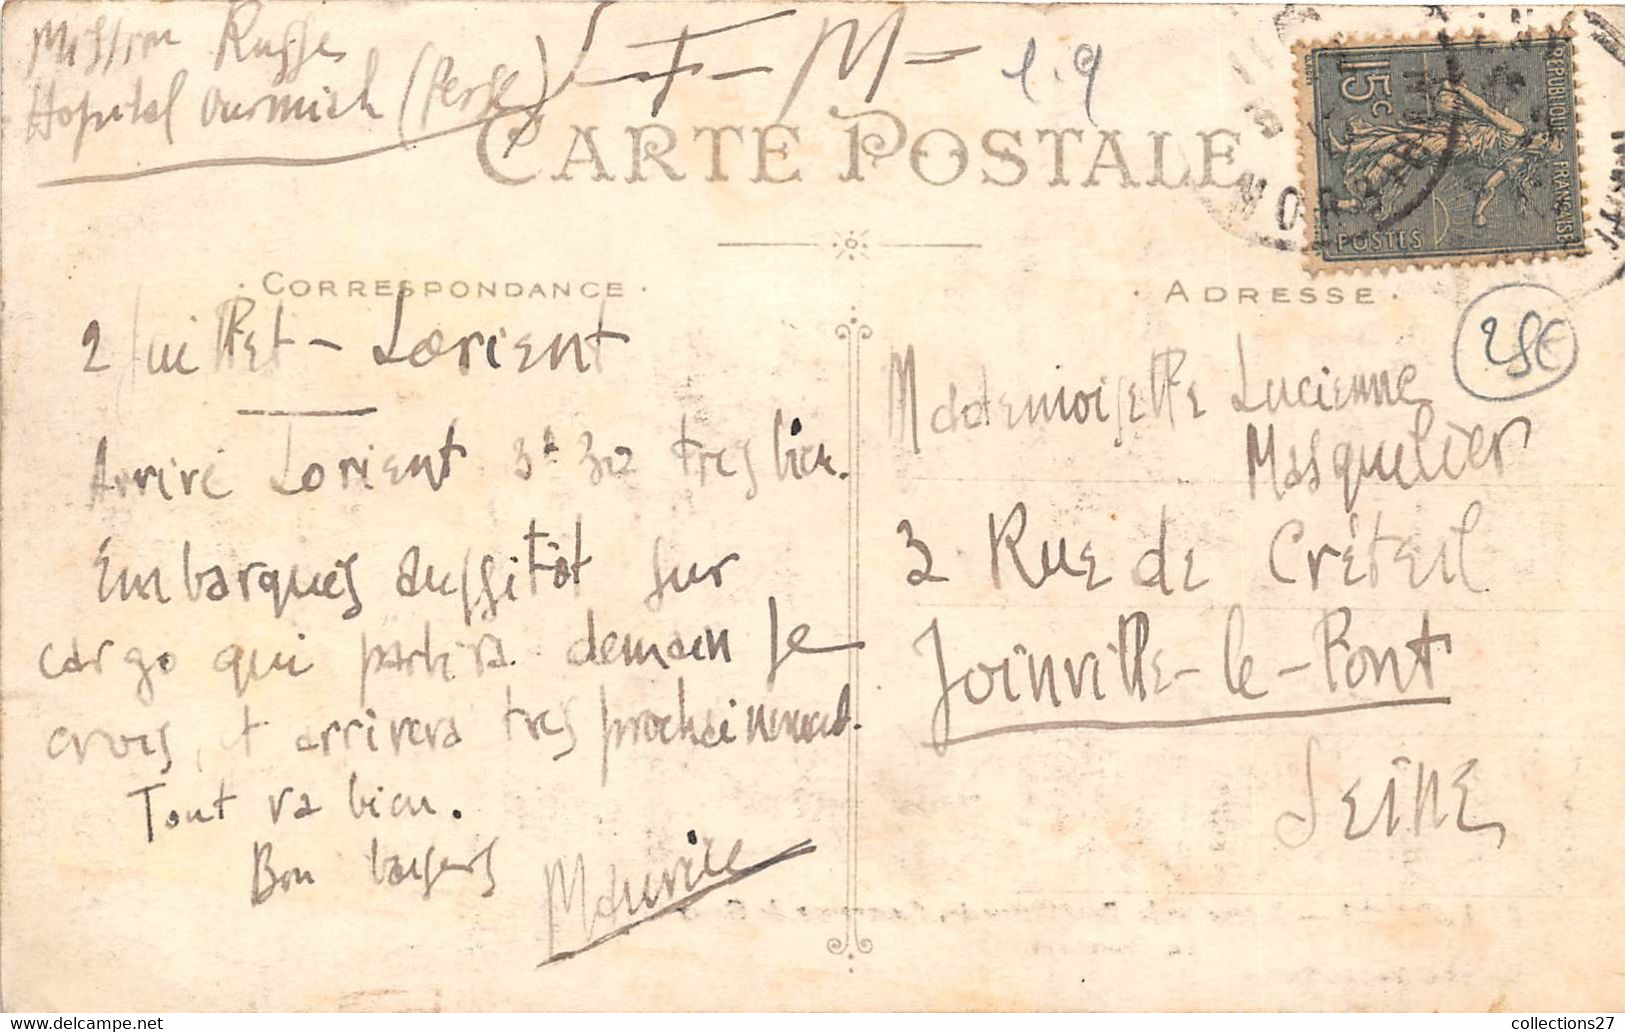 Mission Russe
Hopital Ourmiah (Perse)
F - M -
1.9
CARTE POSTALE
RÉPUBLIQUE FRANÇAISE
15c
POSTES
· CORRESPONDANCE ·
· ADRESSE ·
2 Juillet - Lorient
25€
Arrivé Lorient 3h 30 tres bien.
Embarqués aussitôt sur
cargo qui partira demain je
crois, et arrivera tres prochainement.
Tout va bien.
Bon baisers
Maurice
Mademoiselle Lucienne
Masquelier
3 Rue de Créteil
Joinville-le-Pont
Seine
collections27